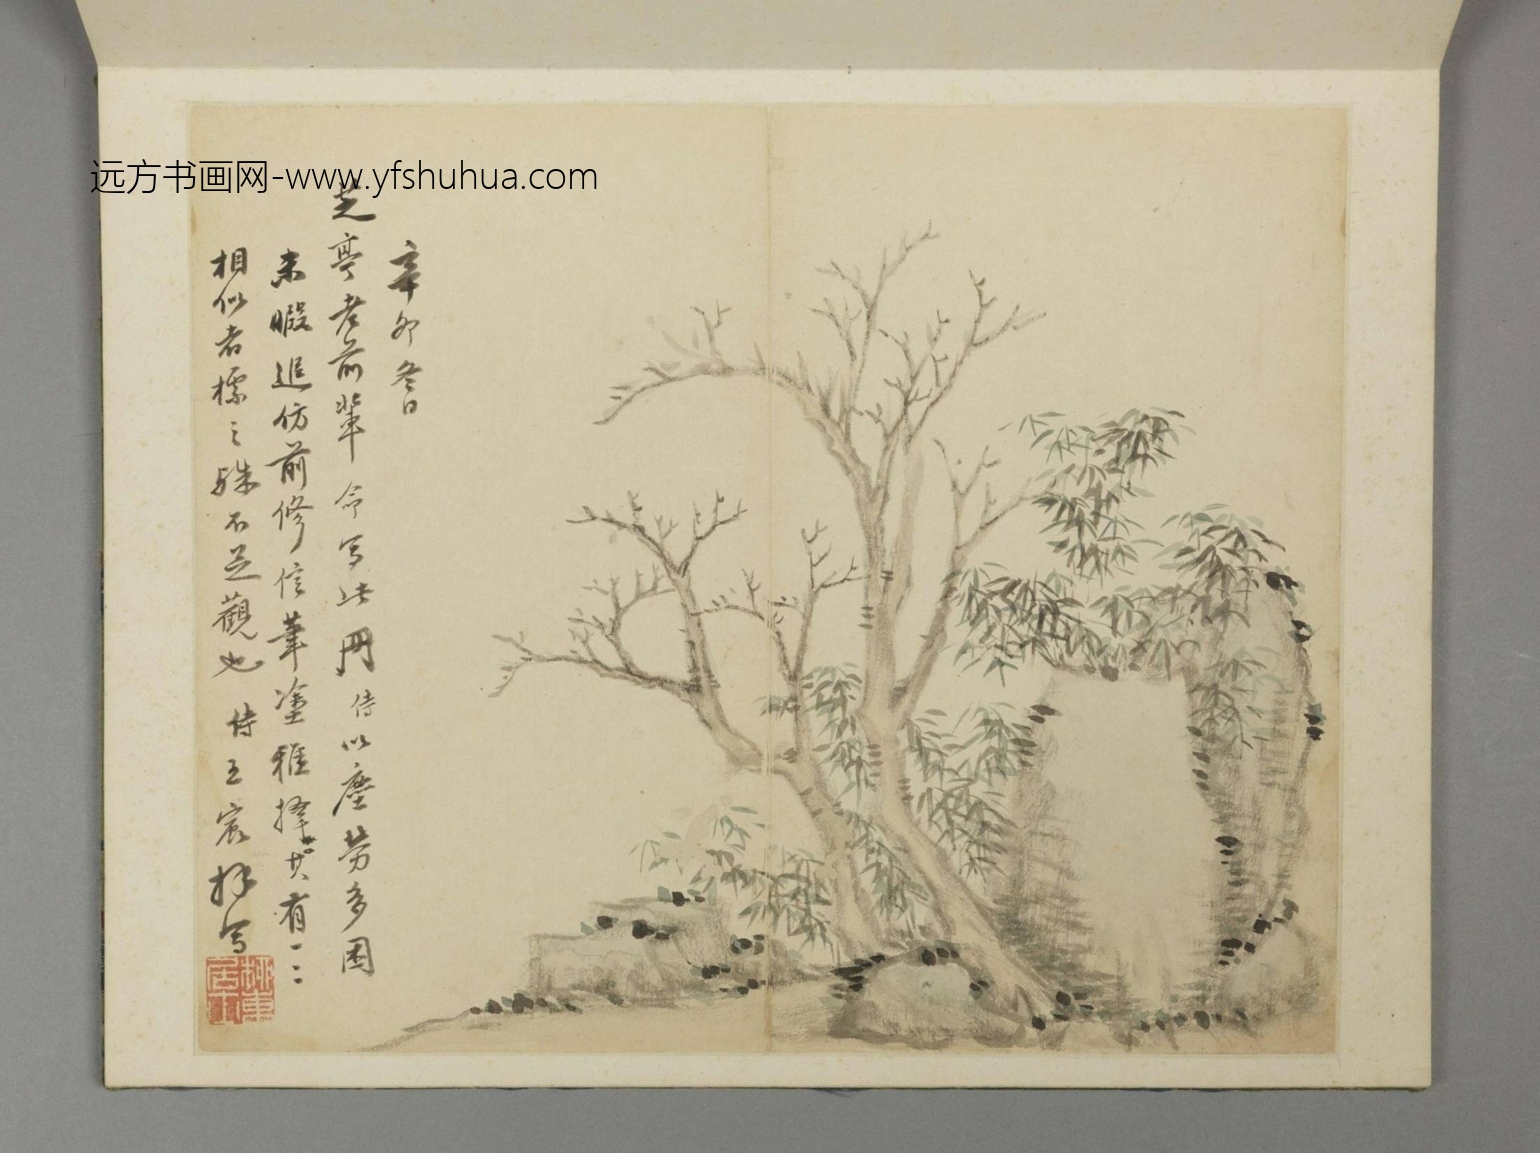 远方书画网-www.yfshuhua.com
辛卯冬日
芝亭老前輩 令写此冊 侍以塵劳多困
未暇追仿前修信筆塗雅擇其有一二
相似者標之殊不足觀也 侍王宸拜写